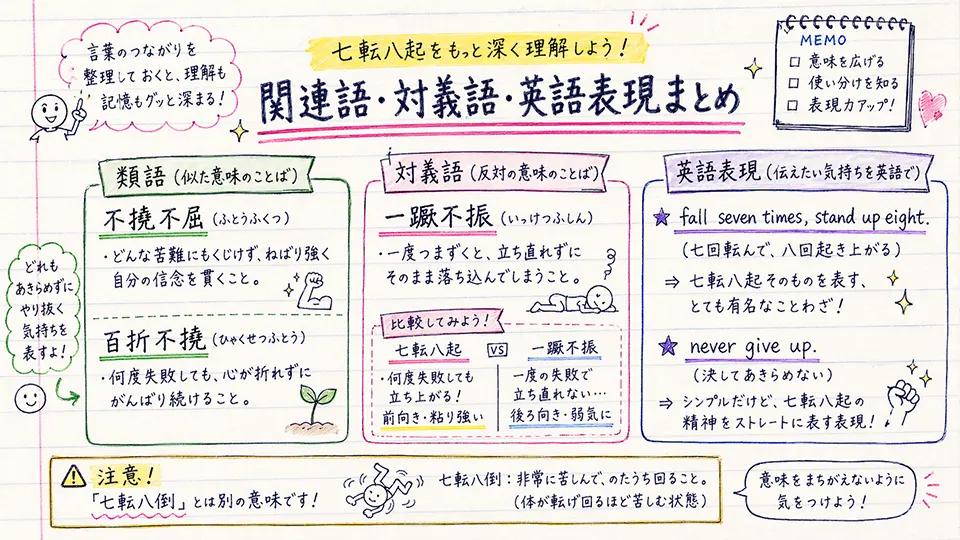 言葉のつながりを
整理しておくと、理解も
記憶もグッと深まる!
七転八起をもっと深く理解しよう!
関連語・対義語・英語表現まとめ
MEMO
□ 意味を広げる
□ 使い分けを知る
□ 表現力アップ!
類語(似た意味のことば)
不撓不屈(ふとうふくつ)
・どんな苦難にもくじけず、ねばり強く
自分の信念を貫くこと。
百折不撓(ひゃくせつふとう)
・何度失敗しても、心が折れずに
がんばり続けること。
どれも
あきらめずに
やり抜く
気持ちを
表すよ!
対義語(反対の意味のことば)
一蹶不振(いっけつふしん)
・一度つまずくと、立ち直れずに
そのまま落ち込んでしまうこと。
比較してみよう!
七転八起 VS 一蹶不振
・何度失敗しても
立ち上がる!
前向き・粘り強い
・一度の失敗で
立ち直れない…
後ろ向き・弱気に
英語表現(伝えたい気持ちを英語で)
★ fall seven times, stand up eight.
(七回転んで、八回起き上がる)
⇒ 七転八起そのものを表す、
とても有名なことわざ!
★ never give up.
(決してあきらめない)
⇒ シンプルだけど、七転八起の
精神をストレートに表す表現!
注意!
「七転八倒」とは別の意味です!
七転八倒:非常に苦しんで、のたうち回ること。
(体が転げ回るほど苦しむ状態)
意味をまちがえないように
気をつけよう!